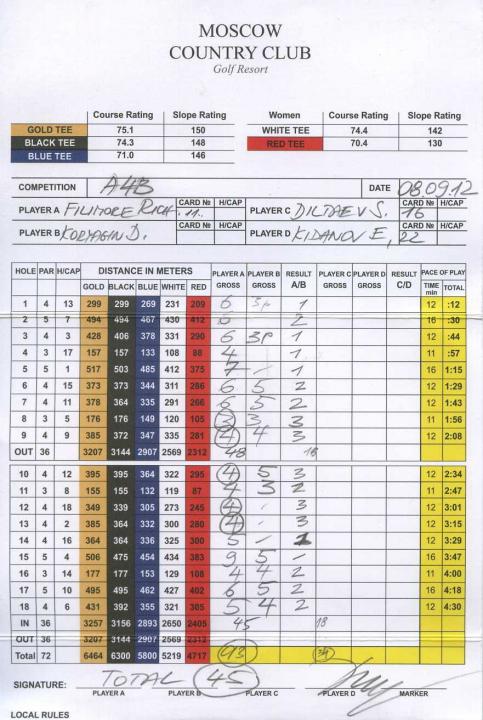 MOSCOW
COUNTRY CLUB
Golf Resort
Course Rating Slope Rating Women Course Rating Slope Rating
GOLD TEE 75.1 150 WHITE TEE 74.4 142
BLACK TEE 74.3 148 RED TEE 70.4 130
BLUE TEE 71.0 146
COMPETITION A4B DATE 08.09.12
PLAYER A FILIMORE RICH. CARD № H/CAP 11. PLAYER C DILTAEV S. CARD № H/CAP 16
PLAYER B KORYAGIN D. CARD № H/CAP PLAYER D KIDANOV E, CARD № H/CAP 22
HOLE PAR H/CAP DISTANCE IN METERS PLAYER A PLAYER B RESULT PLAYER C PLAYER D RESULT PACE OF PLAY
GOLD BLACK BLUE WHITE RED GROSS GROSS A/B GROSS GROSS C/D TIME min TOTAL
1 4 13 299 299 269 231 209 6 3p 1 12 :12
2 5 7 494 494 467 430 412 6 2 16 :30
3 4 3 428 406 378 331 290 6 3P 1 12 :44
4 3 17 157 157 133 108 88 4 1 11 :57
5 5 1 517 503 485 412 375 7 - 1 16 1:15
6 4 15 373 373 344 311 286 6 5 2 12 1:29
7 4 11 378 364 335 291 266 6 5 2 12 1:43
8 3 5 176 176 149 120 105 3 3 3 11 1:56
9 4 9 385 372 347 335 281 4 4 3 12 2:08
OUT 36 3207 3144 2907 2569 2312 48 18
10 4 12 395 395 364 322 295 4 5 3 12 2:34
11 3 8 155 155 132 119 87 4 3 2 11 2:47
12 4 18 349 339 305 273 245 4 - 3 12 3:01
13 4 2 385 364 332 300 280 4 - 3 12 3:15
14 4 16 364 364 336 325 300 5 - 1 12 3:29
15 5 4 506 475 454 434 383 9 5 - 16 3:47
16 3 14 177 177 153 129 108 4 4 2 11 4:00
17 5 10 495 495 462 427 402 6 5 2 16 4:18
18 4 6 431 392 355 321 305 5 4 2 12 4:30
IN 36 3257 3156 2893 2650 2405 45 18
OUT 36 3207 3144 2907 2569 2312
Total 72 6464 6300 5800 5219 4717 93
SIGNATURE: TOTAL 45
PLAYER A PLAYER B PLAYER C PLAYER D MARKER
LOCAL RULES